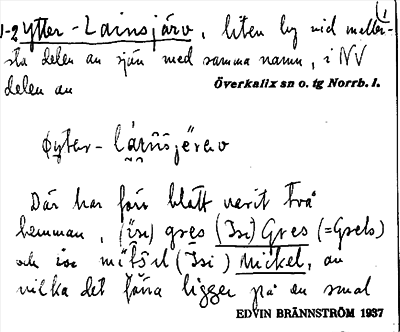 1-2 Ytter-Lainsjärv, liten by vid meller-
sta delen av sjön med samma namn, i NV
delen av Överkalix sn o. tg Norrb. l.
Där har förr blott varit två
hemman, (ise) gres (Isi) Gres (=Grels)
och ise (Isi) Mickel, av
vilka det förra ligger på en smal
EDVIN BRÄNNSTRÖM 1937